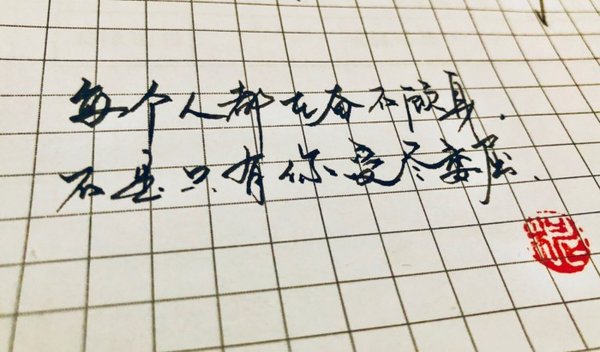 每个人都在奋不顾身.
不是只有你受尽委屈.